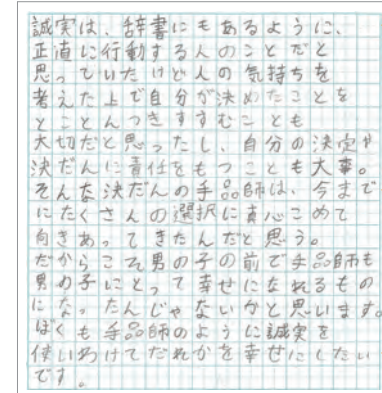 誠実は、辞書にもあるように、
正直に行動する人のことだと
思っていたけど人の気持ちを
考えた上で自分が決めたことを
とことんつきすすむことも
大切だと思ったし、自分の決定や
決だんに責任をもつことも大事。
そんな決だんの手品師は、今まで
にたくさんの選択に真心こめて
向きあってきたんだと思う。
だからこそ男の子の前で手品師も
男の子にとって幸せになれるもの
になったんじゃないかと思います。
ぼくも手品師のように誠実を
使いわけてだれかを幸せにしたい
です。